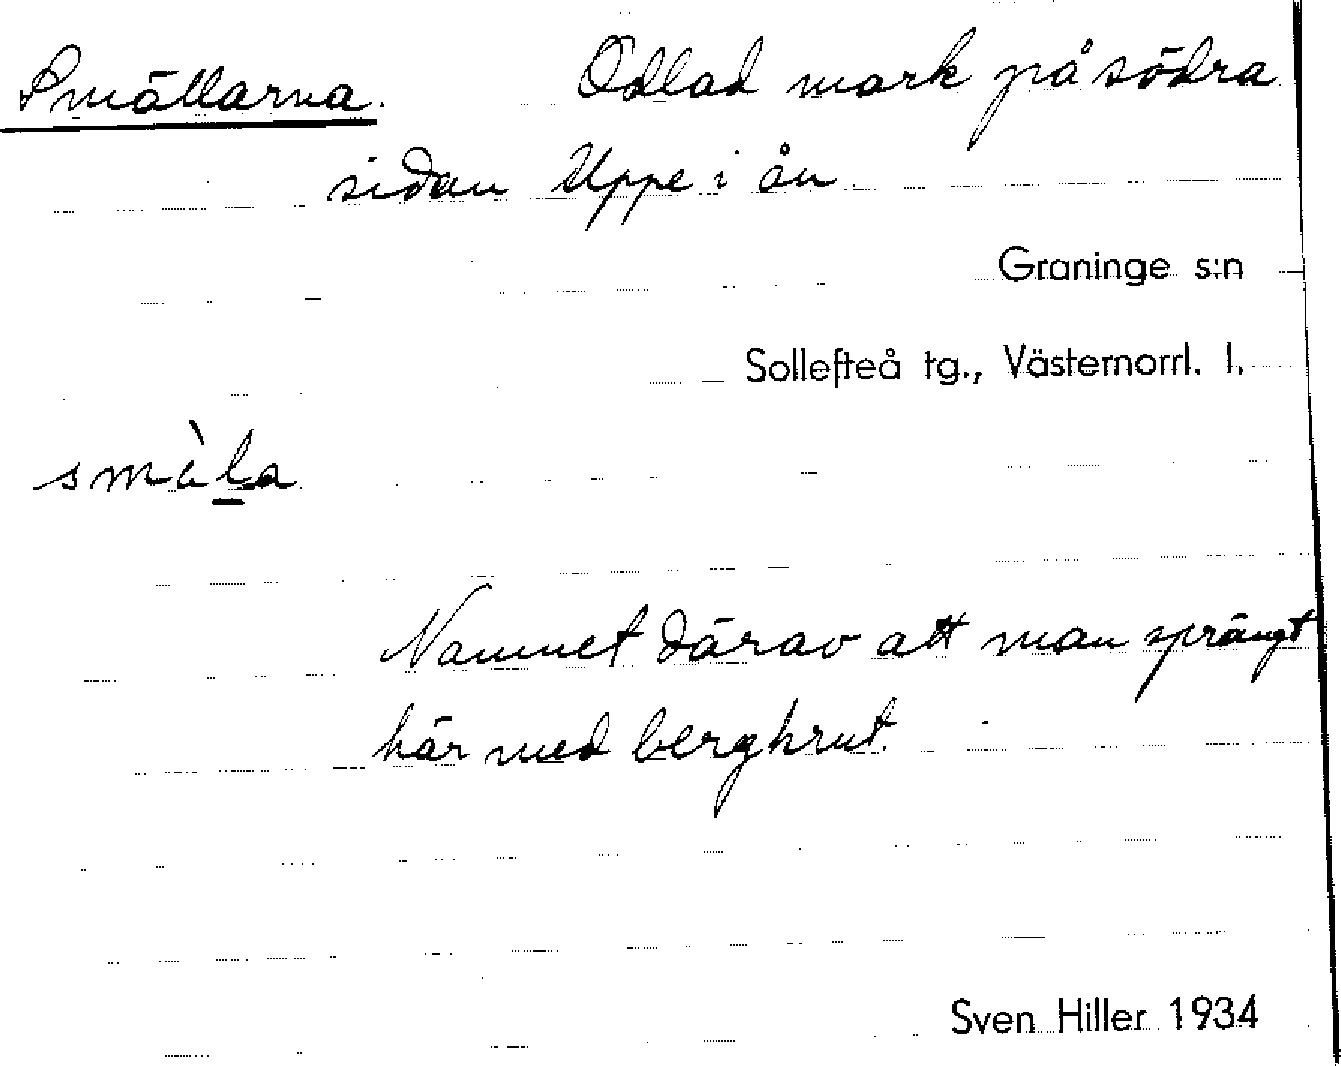 Smällarna. Odlad mark på södra
sidan Uppe i ån
Graninge s:n
Sollefteå tg., Västernorrl. l.
smὰl̲a
Namnet därav att man sprängt
här med bergkrut.
Sven Hiller 1934